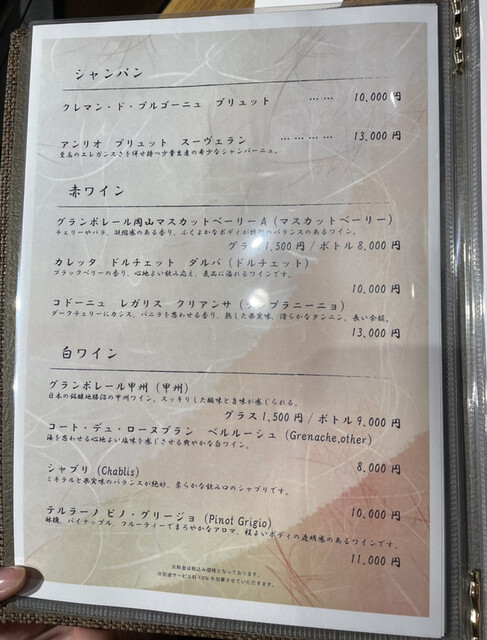 シャンパン
クレマン・ド・ブルゴーニュ ブリュット …… 10,000 円
アンリオ ブリュット スーヴェラン ………… 13,000 円
至高のエレガンスさを併せ持つ少量生産の希少なシャンパーニュ。
赤ワイン
グランポレール岡山マスカットベーリーA (マスカットベーリー)
チェリーやバラ、凝縮感のある香り、ふくよかなボディが特徴のバランスのあるワイン。
グラス 1,500 円 / ボトル 8,000 円
カレッタ ドルチェット ダルバ (ドルチェット)
ブラックベリーの香り、心地よい飲み応え、気品に溢れるワインです。
10,000 円
コドーニュ レガリス クリアンサ (テンプラニーニョ)
ダークチェリーにカシス、バニラを思わせる香り、熟した果実味、滑らかなタンニン、長い余韻。
13,000 円
白ワイン
グランポレール甲州 (甲州)
日本の銘醸地勝沼の甲州ワイン。スッキリした酸味と旨味が感じられる。
グラス 1,500 円 / ボトル 9,000 円
コート・デュ・ローヌブラン ベルルーシュ (Grenache,other)
海を思わせる心地よい塩味を感じさせる爽やかな白ワイン。
8,000 円
シャブリ (Chablis)
ミネラルと果実味のバランスが絶妙、柔らかな飲み口のシャブリです。
10,000 円
テルラーノ ピノ・グリージョ (Pinot Grigio)
林檎、パイナップル、フルーティーでまろやかなアロマ、程よいボディの透明感のあるワインです。
11,000 円
※料金は税込み価格となっております。
※別途サービス料 10% を加算させていただきます。